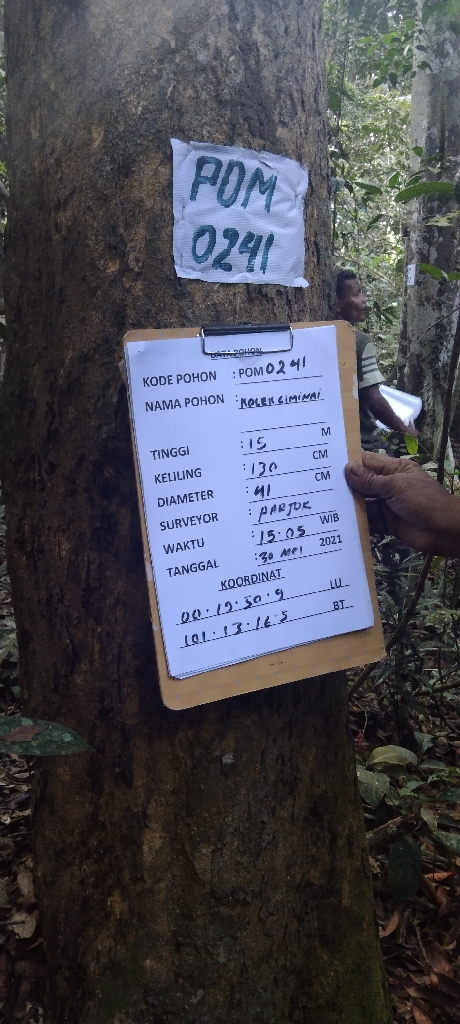 POM
0241
DATA POHON
KODE POHON : POM 0241
NAMA POHON : KOLEK SIMINAI
TINGGI : 15 M
KELILING : 130 CM
DIAMETER : 41 CM
SURVEYOR : PARJOK
WAKTU : 15.05 WIB
TANGGAL : 30 MEI 2021
KOORDINAT
00.19.50.9 LU
101.13.16.5 BT